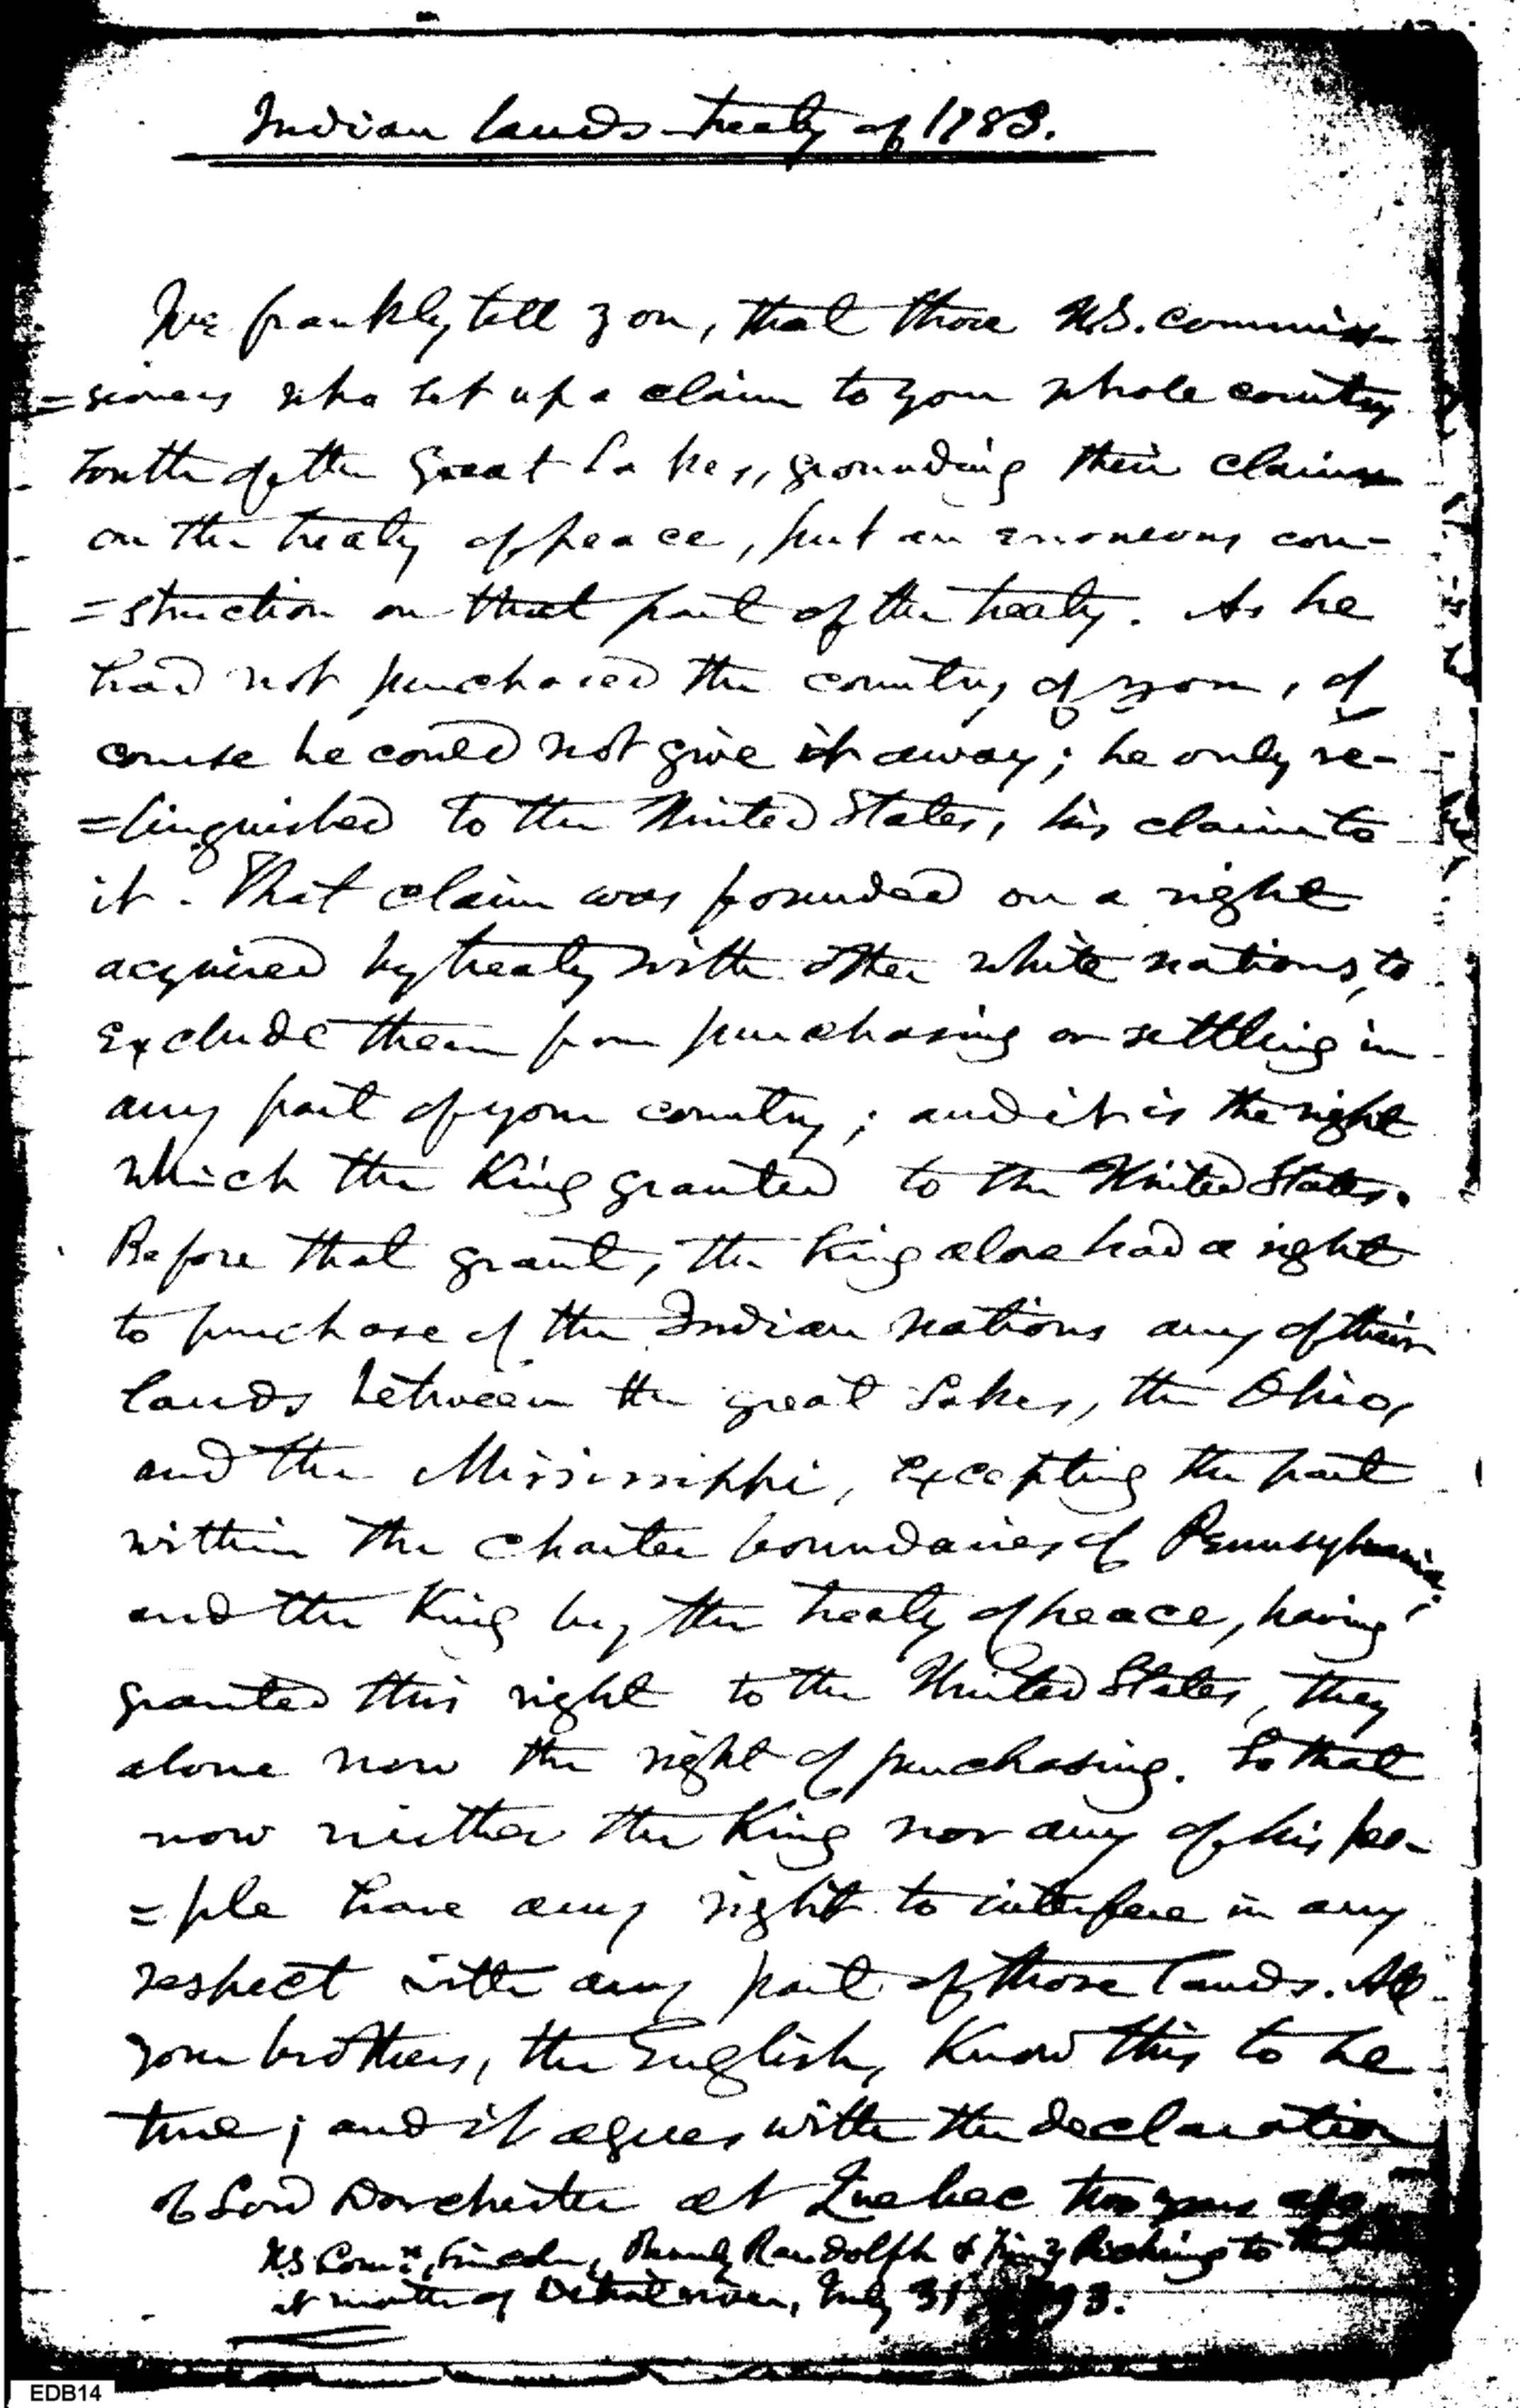 Indian lands treaty of 1783.
We frankly tell you, that those U.S. commis-
=sioners who set up a claim to your whole country
south of the Great Lakes, grounding their claim
on the treaty of peace, put an erroneous con-
=struction on that part of the treaty. As he
had not purchased the country of you, of
course he could not give it away; he only re-
=linquished to the United States, his claim to
it. That claim was founded on a right
acquired by treaty with other white nations, to
exclude them from purchasing or settling in
any part of your country; and it is the right
which the King granted to the United States.
Before that grant, the King alone had a right
to purchase of the Indian nations any of their
lands between the great Lakes, the Ohio,
and the Mississippi, excepting the part
within the charter boundaries of Pennsylvania;
and the King by the treaty of peace, having
granted this right to the United States, they
alone now the right of purchasing. So that
now neither the King nor any of his peo-
=ple have any right to interfere in any
respect with any part of those lands. All
your brothers, the English, know this to be
true; and it agrees with the declaration
of Lord Dorchester at Quebec two years ago
US Comrs, Lincoln, Randolph & Pickering to the
at mouth of Detroit river, July 31 1793.
EDB14